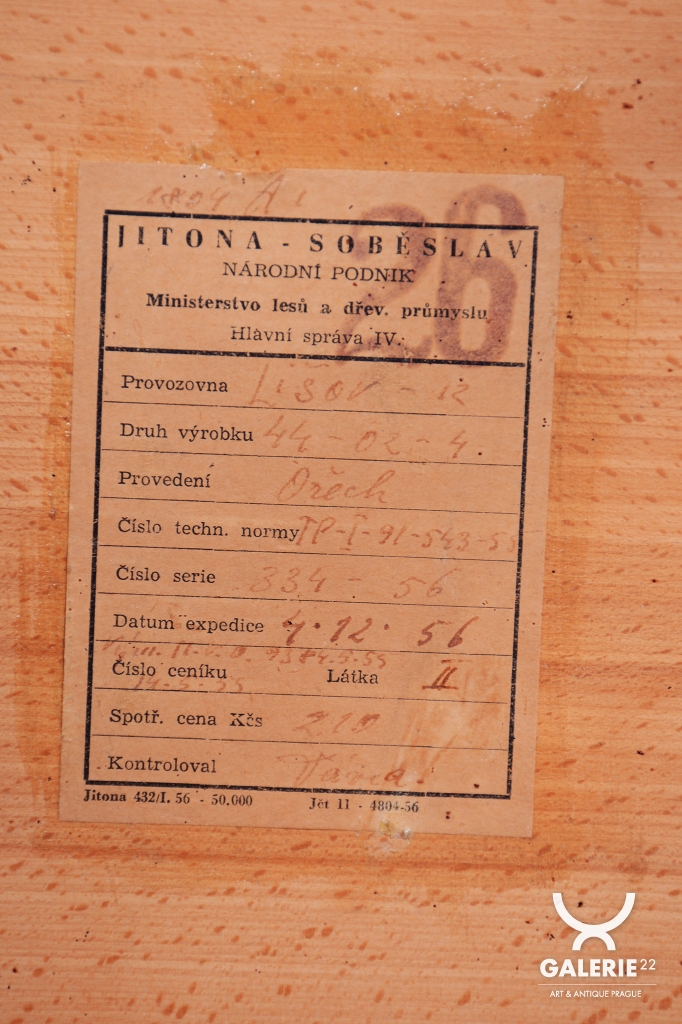 28
JITONA - SOBĚSLAV
NÁRODNÍ PODNIK
Ministerstvo lesů a dřev. průmyslu
Hlavní správa IV.
Provozovna LIŠOV - 12
Druh výrobku 44 - 02 - 4.
Provedení Ořech
Číslo techn. normy TP-I-91-543-55
Číslo serie 334 - 56
Datum expedice 4. 12. 56
Číslo ceníku Látka II
Spotř. cena Kčs
Kontroloval
Jitona 432/I. 56 - 50.000 Jčt 11 - 4804-56
GALERIE 22
ART & ANTIQUE PRAGUE